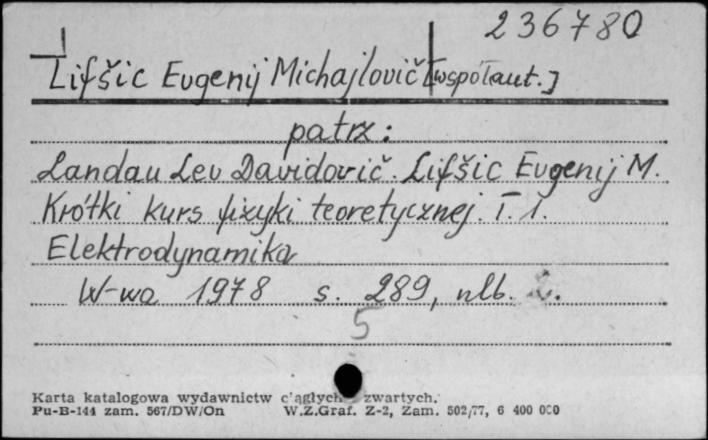 236780
Lifšic Evgenij Michajlovič [współaut.]
patrz:
Landau Lev Davidovič. Lifšic Evgenij M.
Krótki kurs fizyki teoretycznej. T. 1.
Elektrodynamika
W-wa 1978 s. 289, nlb.
5
Karta katalogowa wydawnictw ciągłych zwartych.
Pu-B-144 zam. 567/DW/On W.Z.Graf. Z-2, Zam. 502/77, 6 400 000